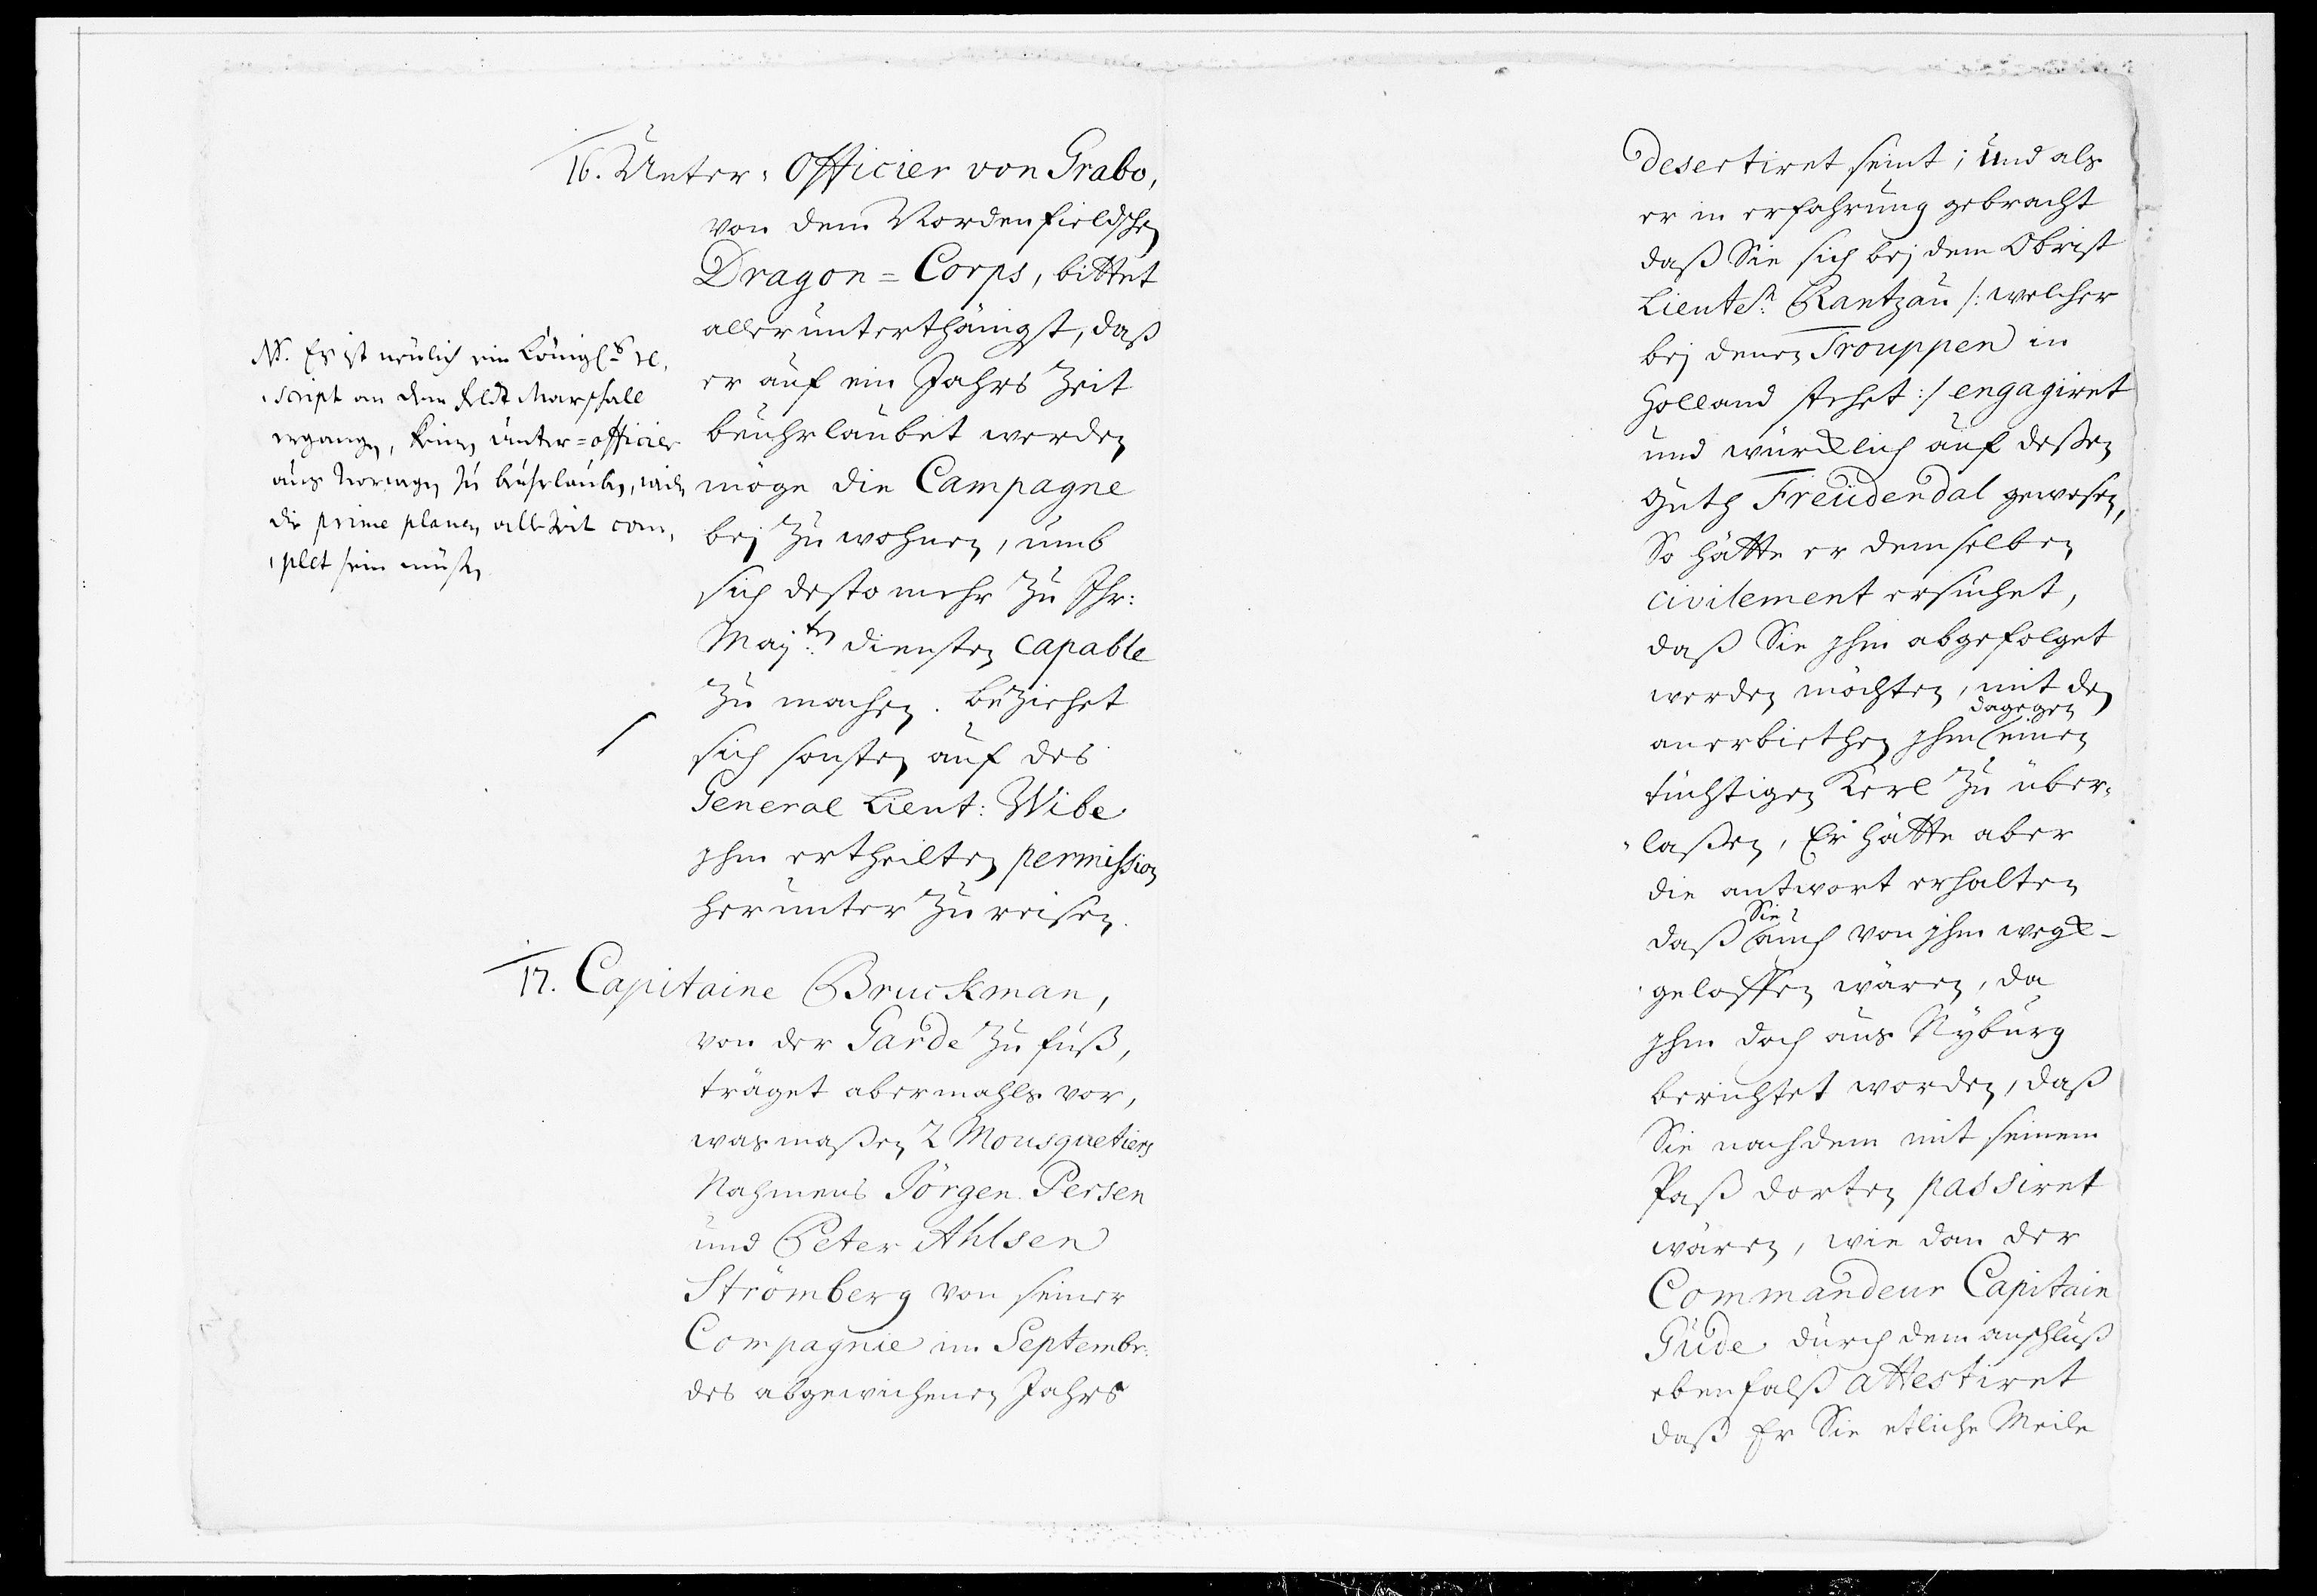 16. Unter-Officier von Grabo,
von dem Nordenfieldschen
Dragon=Corps, bittet
allerunterthänigst, daß
er auf ein Jahrs Zeit
beuhrlaubet werden
möge die Campagne
bej zu wohnen, umb
sich desto mehr zu Ihr:
Maj:ten diensten capable
zu machen. Beziehet
sich sonsten auf des
General Lieut: Wibe
ihm ertheilten permission
herunter zu reisen.
NB. Es ist neulich ein Königl:s re-
script an dem Feldt Marschall
ergangen, keinen unter=officier
aus Norwegen zu beuhrlauben, weilen
die prime planen allezeit com-
plet sein müßen
17. Capitaine Bruckman,
von der Garde zu fuß,
träget abermahls vor,
wasmaßen 2 Mousquetiers
Nahmens Jörgen Persen
und Peter Ahlsen
Strömberg von seiner
Compagnie im Septembr:
des abgewichenen Jahrs
desertiret seint; und als
er in erfahrung gebracht
daß Sie sich bej dem Obrist
Lieute:n Rantzau /: welcher
bej denen Trouppen in
Holland stehet :/ engagiret
und würcklich auf deßen
Guth Freudendal gewesen,
So hätte er demselben
civilement ersuchet,
daß Sie ihm abgefolget
werden möchten, mit den
anerbiethen ihm dagegen einen
tüchtigen Kerl zu über-
laßen, Er hätte aber
die antwort erhalten
daß Sie auch von ihm weg-
geloffen wären, da
ihm doch aus Nyburg
berichtet worden, daß
Sie nachdem mit seinem
Paß dorten passiret
wären, wie dan der
Commandeur Capitain
Gude durch dem anschluß
ebenfalß attestiret
daß Er Sie etliche Meile